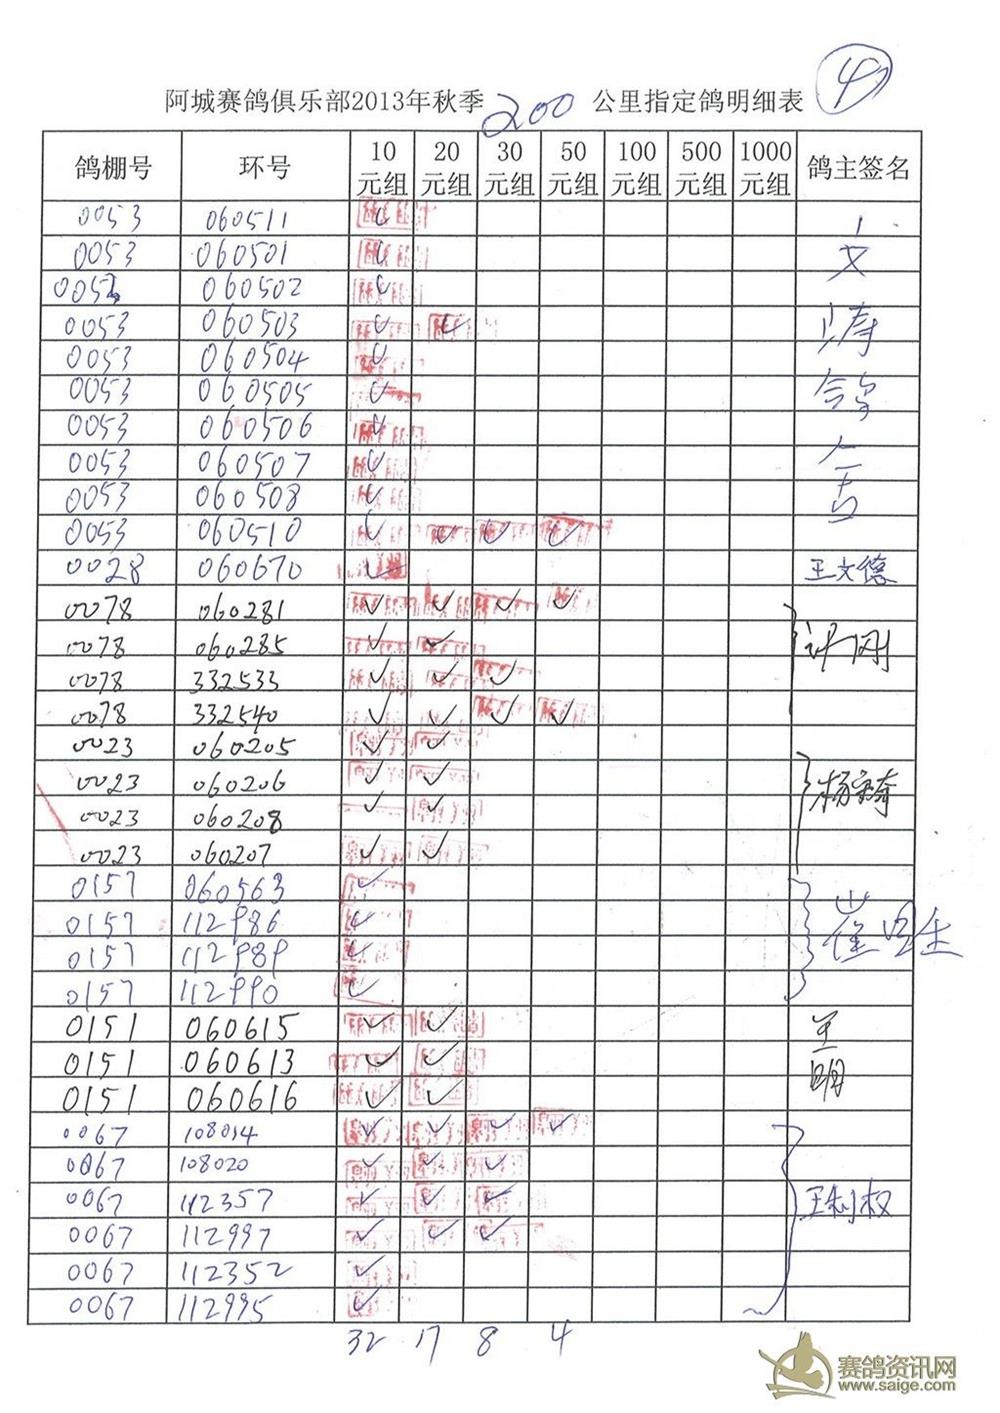 4
阿城赛鸽俱乐部2013年秋季 200 公里指定鸽明细表
鸽棚号 环号 10元组 20元组 30元组 50元组 100元组 500元组 1000元组 鸽主签名
0053 060511 ✓
0053 060501 ✓ 文
0053 060502 ✓
0053 060503 ✓ ✓ 涛
0053 060504 ✓
0053 060505 ✓ 鸽
0053 060506 ✓
0053 060507 ✓
0053 060508 ✓ 舍
0053 060510 ✓ ✓ ✓ ✓
0028 060670 ✓ 王文德
0078 060281 ✓ ✓ ✓ ✓
0078 060285 ✓ ✓ 许刚
0078 332533 ✓ ✓ ✓
0078 332540 ✓ ✓ ✓ ✓
0023 060205 ✓ ✓
0023 060206 ✓ ✓ 杨
0023 060208 ✓ ✓
0023 060207 ✓ ✓
0157 060563 ✓
0157 112986 ✓ 崔
0157 112989 ✓
0157 112990 ✓
0151 060615 ✓ ✓
0151 060613 ✓ ✓ 明
0151 060616 ✓ ✓
0067 108014 ✓ ✓ ✓ ✓
0067 108020 ✓ ✓ ✓
0067 112357 ✓ ✓ ✓ 王利权
0067 112997 ✓ ✓ ✓
0067 112352 ✓
0067 112995 ✓
32 17 8 4
赛鸽资讯网
www.saige.com